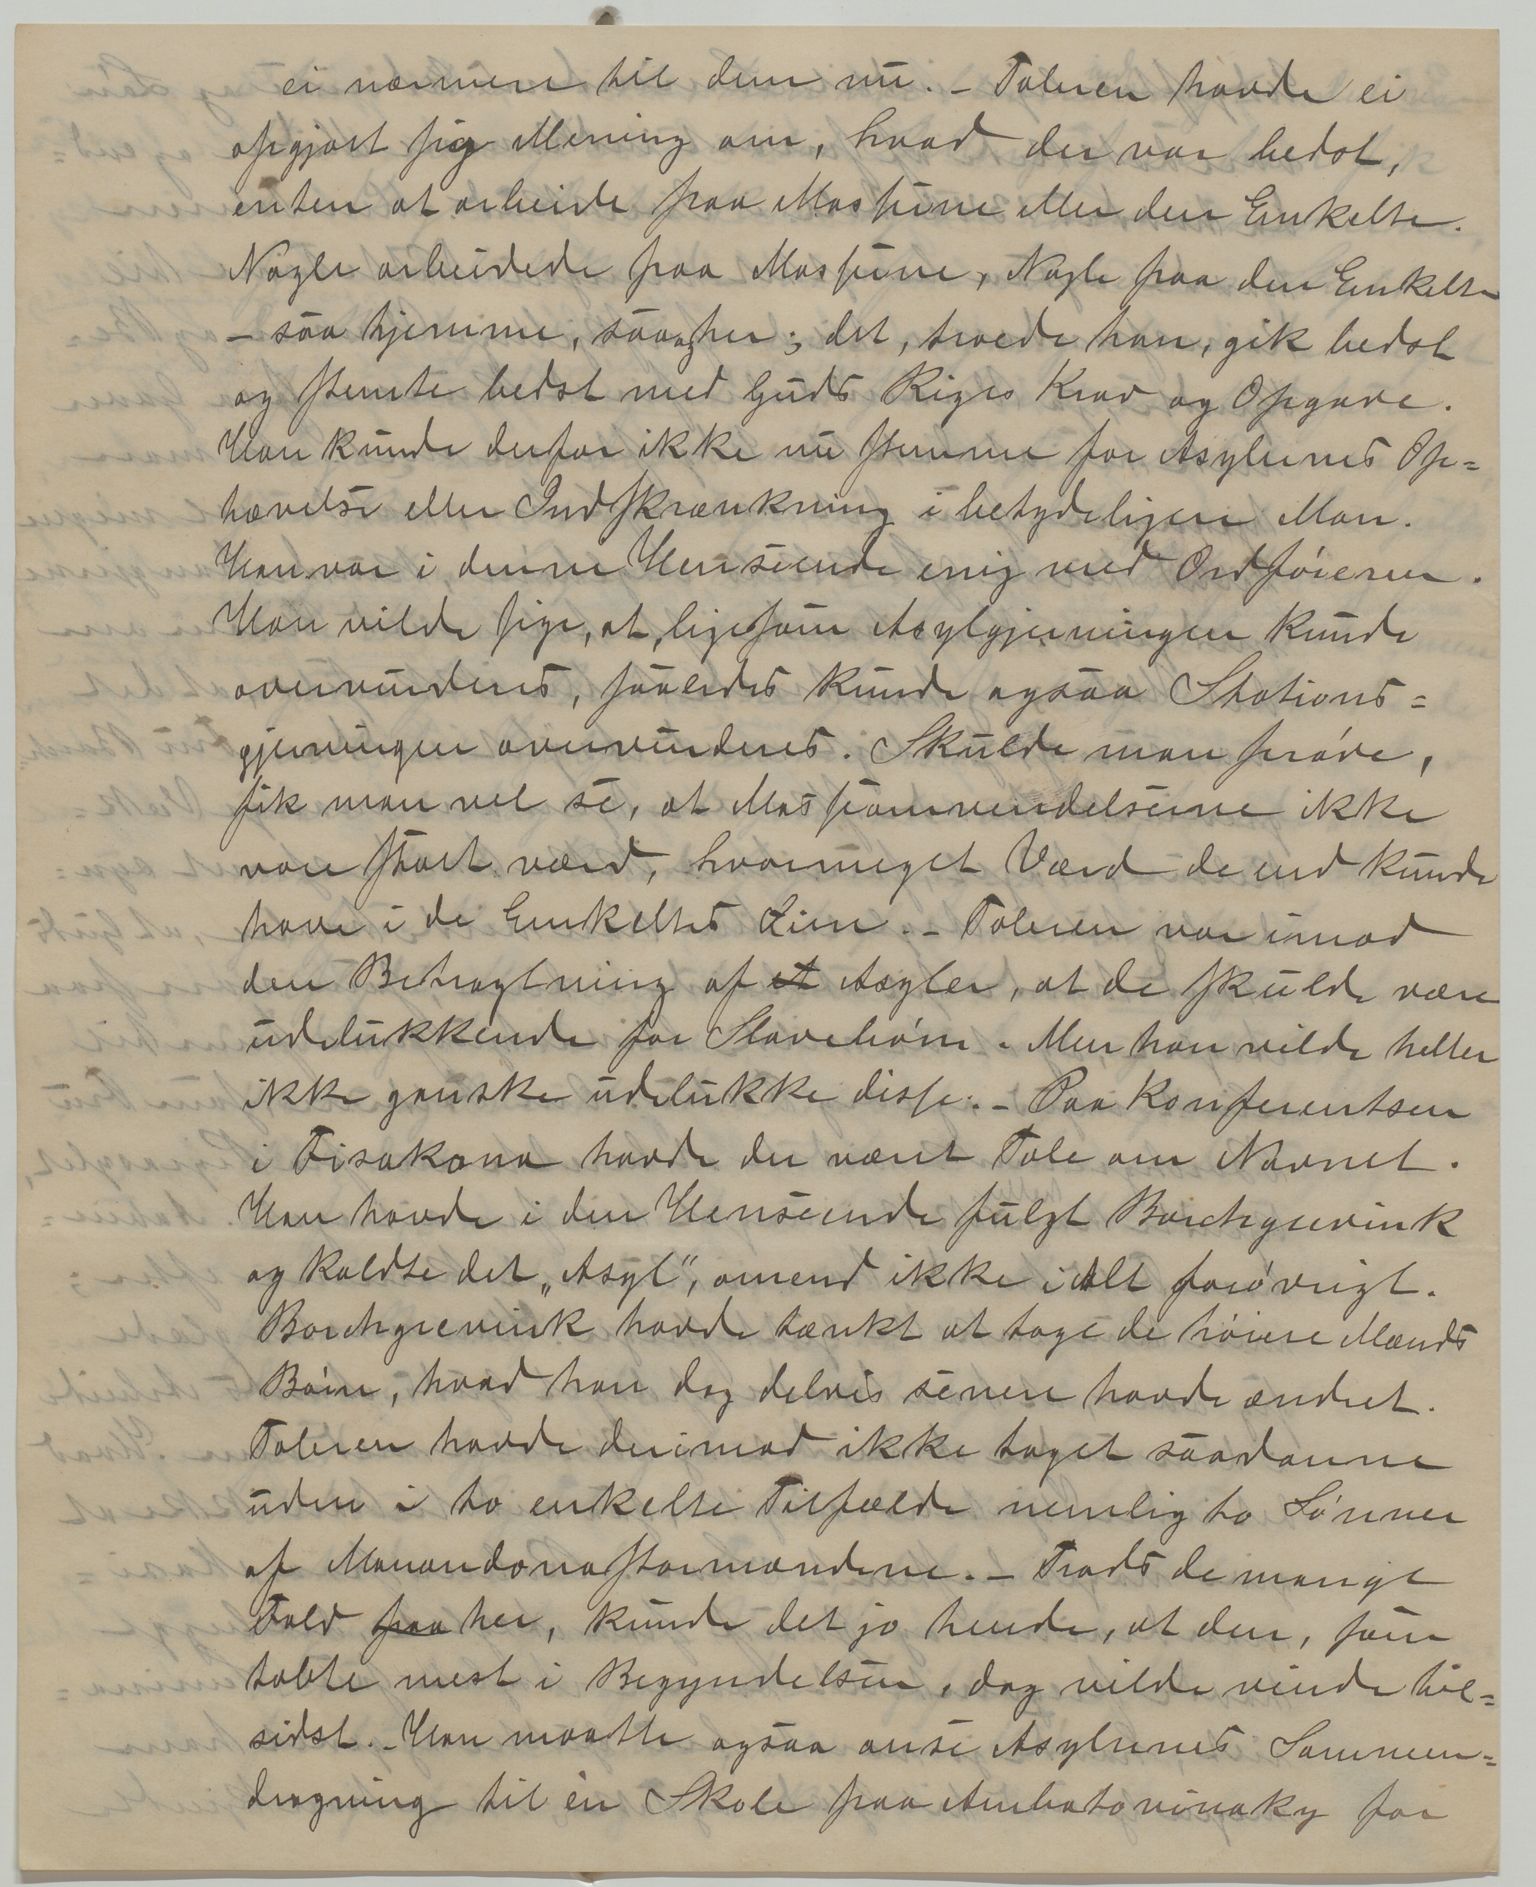 ei nærmere til dem nu. – Taleren havde ei
opgjort sig Mening om, hvad der var bedst,
enten at arbeide paa Massene eller den Enkelte.
Nogle arbeidede paa Massene, Nogle paa den Enkelte
– saa hjemme, saa og her; det, troede han, gik bedst
og stemte bedst med Guds Riges Krav og Opgave.
Han kunde derfor ikke nu stemme for Asylernes Op=
hævelse eller Indskrænkning i betydeligere Mon.
Han var i denne Henseende enig med Ordføreren.
Han vilde sige, at, ligesom Asylgjerningen kunde
overvurderes, saaledes kunde ogsaa Stations=
gjerningen overvurderes. Skulde man prøve,
fik man vel se, at Masseomvendelserne ikke
vare stort værd, hvormeget Værd de end kunde
have i de Enkeltes Liv. – Taleren var imod
den Betragtning af et Asyler, at de skulde være
udelukkende for Slavebørn. Men han vilde heller
ikke ganske udelukke disse. – Paa Konferentsen
i Fisakana havde der været Tale om Navnet.
Han havde i den Henseende fulgt Borchgrevink
og kaldte det „Asyl", omend ikke i Alt forøvrigt.
Borchgrevink havde tænkt at tage de høiere Mænds
Børn, hvad han dog delvis senere havde ændret.
Taleren havde derimod ikke taget saadanne
uden i to enkelte Tilfælde nemlig to Sønner
af Manandonastormændene. – Trods de mange
Fald paa her, kunde det jo hende, at den, som
tabte mest i Begyndelsen, dog vilde vinde til=
sidst. – Han maatte ogsaa anse Asylernes Sammen=
dragning til én Skole paa Ambatovinaky for